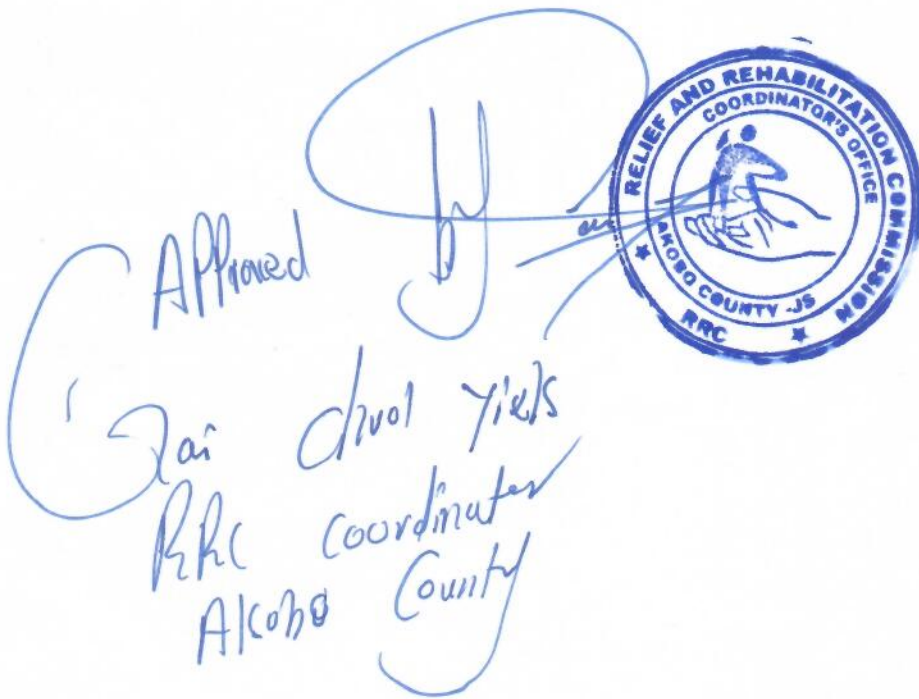 RELIEF AND REHABILITATION COMMISSION
COORDINATOR'S OFFICE
AKOBO COUNTY -JS
RRC
APProved
chuol
RRC Coordinator
Akobo County